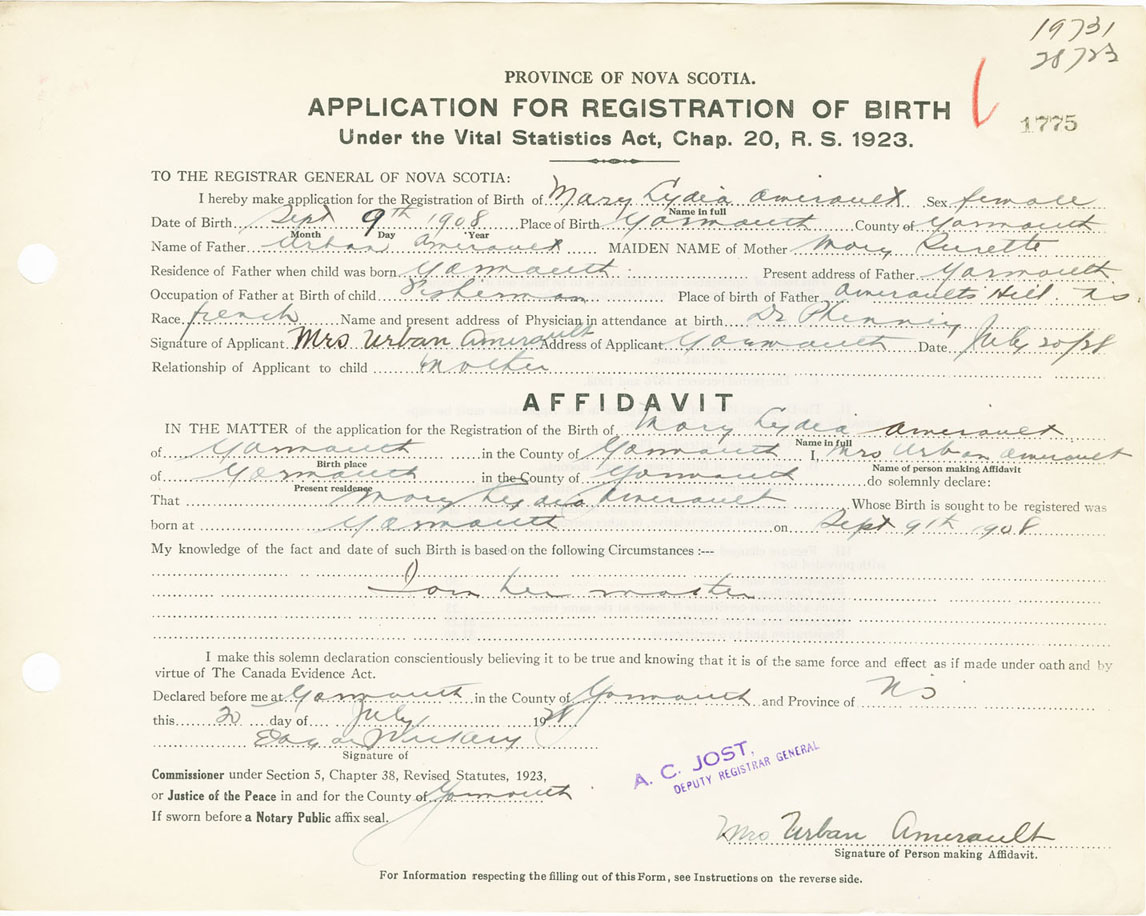 19731
28723
PROVINCE OF NOVA SCOTIA.
APPLICATION FOR REGISTRATION OF BIRTH
1775
Under the Vital Statistics Act, Chap. 20, R. S. 1923.
TO THE REGISTRAR GENERAL OF NOVA SCOTIA:
I hereby make application for the Registration of Birth of Mary Lydia Amirault Sex female
Name in full
Date of Birth Sept 9th 1908 Place of Birth Yarmouth County of Yarmouth
Month Day Year
Name of Father Urban Amirault MAIDEN NAME of Mother Mary
Residence of Father when child was born Yarmouth Present address of Father Yarmouth
Occupation of Father at Birth of child Fisherman Place of birth of Father Amiraults Hill. N.S.
Race french Name and present address of Physician in attendance at birth Dr Phinney
Signature of Applicant Mrs Urban Amirault Address of Applicant Yarmouth Date July 20/28
Relationship of Applicant to child Mother
AFFIDAVIT
IN THE MATTER of the application for the Registration of the Birth of Mary Lydia Amirault
Name in full
of Yarmouth in the County of Yarmouth I, Mrs Urban Amirault
Birth place Name of person making Affidavit
of Yarmouth in the County of Yarmouth do solemnly declare:
Present residence
That Mary Lydia Amirault Whose Birth is sought to be registered was
born at Yarmouth on Sept 9th 1908
My knowledge of the fact and date of such Birth is based on the following Circumstances :---
I am her mother
I make this solemn declaration conscientiously believing it to be true and knowing that it is of the same force and effect as if made under oath and by
virtue of The Canada Evidence Act.
Declared before me at Yarmouth in the County of Yarmouth and Province of NS
this 20 day of July 1928
Edgar
Signature of
Commissioner under Section 5, Chapter 38, Revised Statutes, 1923,
or Justice of the Peace in and for the County of Yarmouth
If sworn before a Notary Public affix seal.
A. C. JOST,
DEPUTY REGISTRAR GENERAL
Mrs Urban Amirault
Signature of Person making Affidavit.
For Information respecting the filling out of this Form, see Instructions on the reverse side.